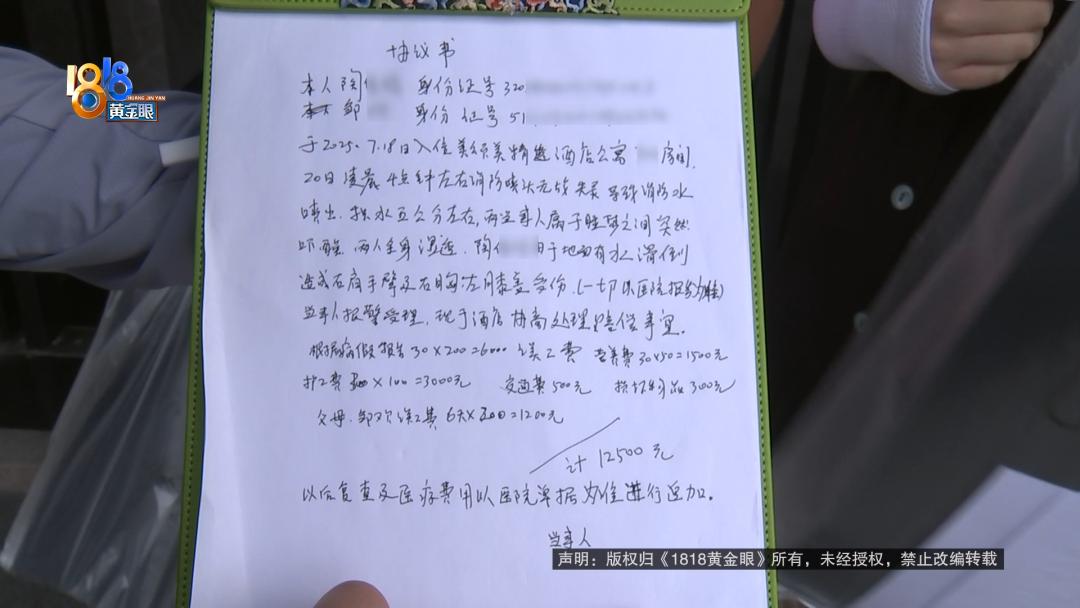 1818
HUANG JIN YAN
黄金眼
协议书
本人陶 身份证号320
邹 身份证号51
于2025.7.18日入住美颂美精选酒店公寓 房间.
20日凌晨4点钟左右消防喷头无故失灵导致消防水
喷出.积水五公分左右,两当事人属于睡梦之间突然
吓醒.两人全身湿透.陶 由于地面有水滑倒
造成右肩手臂及右胸左膝盖受伤.(一切以医院报告为准)
当事人报警受理,现于酒店协商处理赔偿事宜.
根据病假报告30×200=6000误工费 营养费30×50=1500元
护工费 ×100=3000元 交通费500元 损坏物品300元
父母.邹 误工费6天×200=1200元
计12500元
以后复查及医疗费用以医院单据为准进行追加.
当事人
声明:版权归《1818黄金眼》所有,未经授权,禁止改编转载